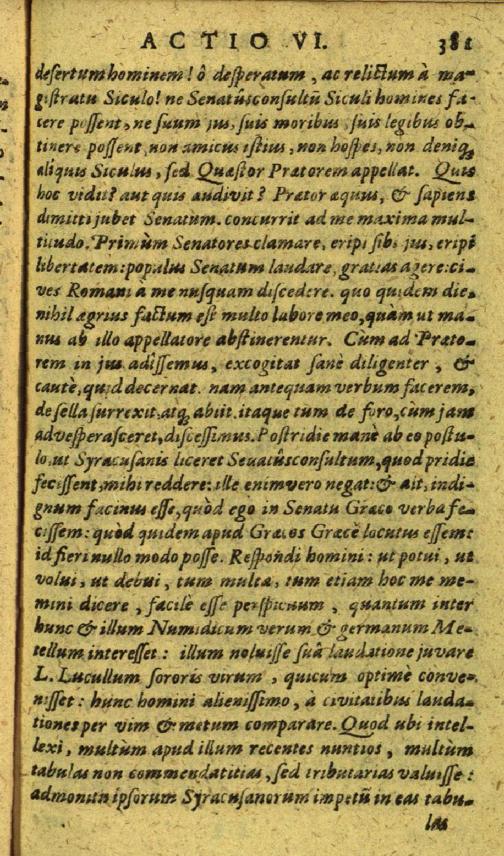 ACTIO VI. 381
desertum hominem! ô desperatum, ac relictum à ma-
gistratu Siculo! ne Senatûsconsultū Siculi homines fa-
cere possent, ne suum jus, suis moribus, suis legibus ob-
tinere possent, non amicus istius, non hospes, non deniq,
aliquis Siculus, sed Quæstor Prætorem appellat. Quis
hoc vidit? aut quis audivit? Prætor æquus, & sapiens
dimitti jubet Senatum. concurrit ad me maxima mul-
titudo. Primùm Senatores clamare, eripi sibi jus, eripi
libertatem: populus Senatum laudare, gratias agere: ci-
ves Romani à me nusquam discedere. quo quidem die
nihil ægrius factum est multo labore meo, quàm ut ma-
nus ab illo appellatore abstinerentur. Cum ad Præto-
rem in jus adissemus, excogitat sanè diligenter, &
cautè, quid decernat. nam antequam verbum facerem,
de sella surrexit, atq, abiit. itaque tum de foro, cùm jam
advesperasceret, discessimus. Postridie manè ab eo postu-
lo, ut Syracusanis liceret Seuatûsconsultum, quod pridie
fecissent, mihi reddere: ille enimvero negat: & ait, indi-
gnum facinus esse, quòd ego in Senatu Græco verba fe-
cissem: quòd quidem apud Græcos Græcè locutus essem:
id fieri nullo modo posse. Respondi homini: ut potui, ut
volui, ut debui, tum multa, tum etiam hoc me me-
mini dicere, facilè esse perspicuum, quantum inter
hunc & illum Numidicum verum & germanum Me-
tellum interesset: illum noluisse suâ laudatione juvare
L. Lucullum sororis virum, quicum optimè conve-
nisset: hunc homini alienissimo, à civitatibus lauda-
tiones per vim & metum comparare. Quod ubi intel-
lexi, multùm apud illum recentes nuntios, multùm
tabulas non commendatitias, sed tributarias valuisse:
admonitu ipsorum Syracusanorum impetū in eas tabu-
las